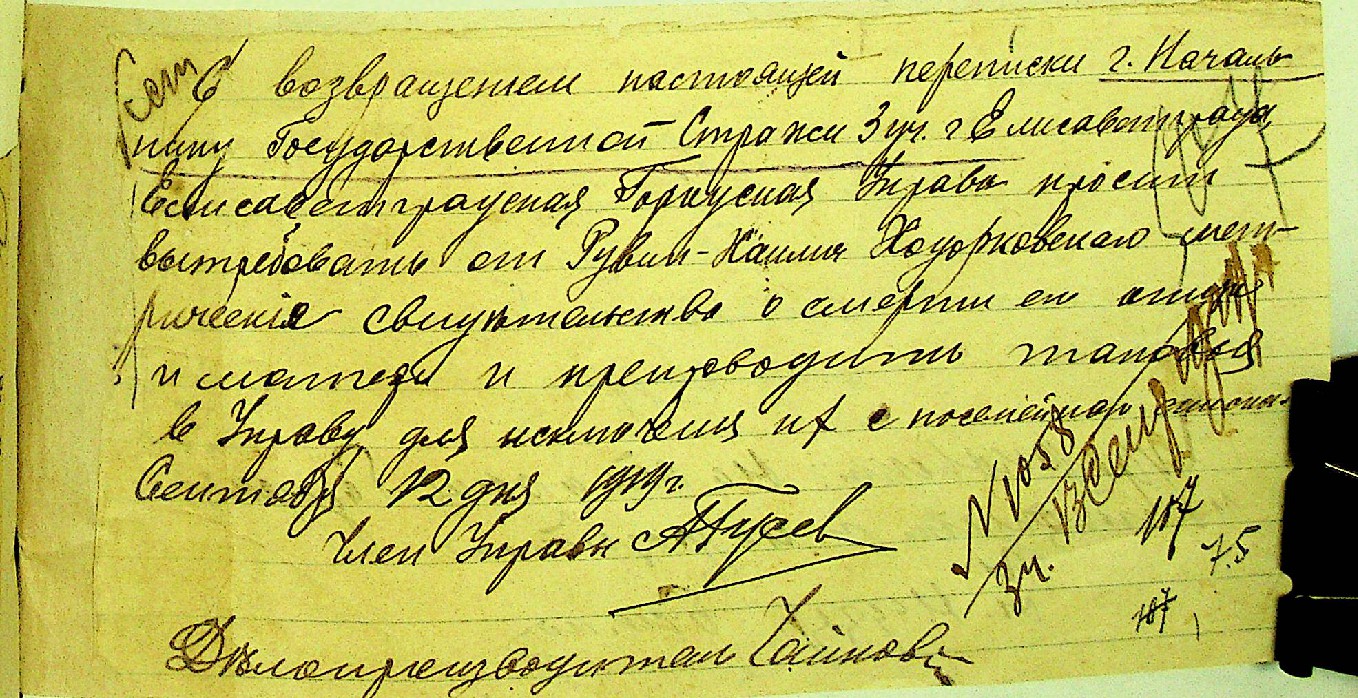 С возвращением настоящей переписки г. Началь
нику Государственной Стражи 3 уч. г Елисаветграда,
Елисаветградская Городская Управа просит
вытребовать от Рувин-Хаима Ходорковского мет-
рическія свидетельства о смерти его отца
и матери и препроводить таковыя
в Управу для исключения их с посемейного
Сентября 12 дня 1919 г.
Член Управы АГусев
Делопроизводитель
N 1058
3 уч. 13 Сент
187
75
187